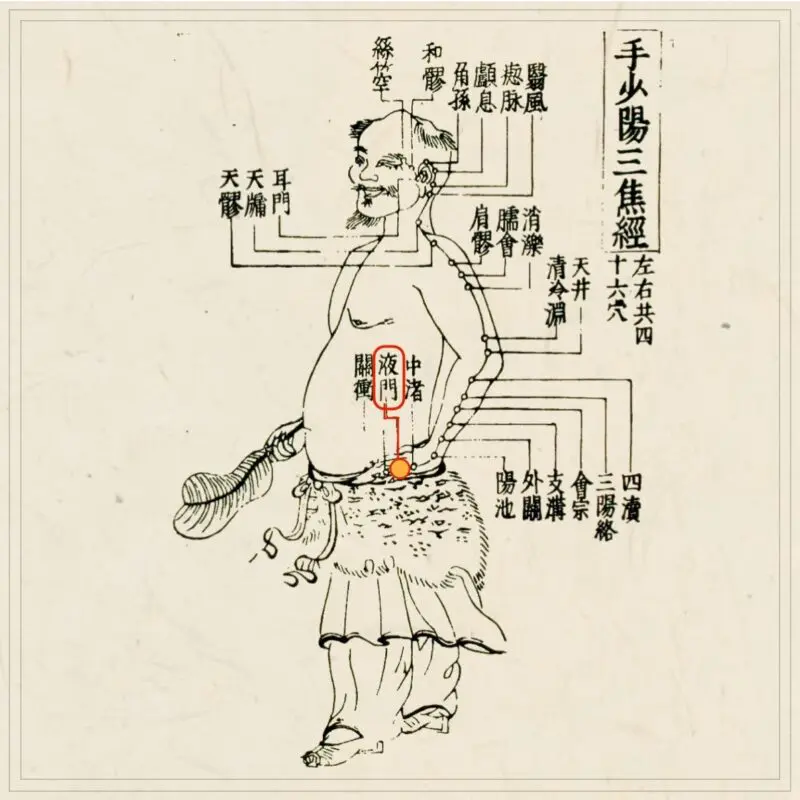 手少陽三焦經
左右共四
十六穴
翳風
瘛脉
顱息
角孫
和髎
絲竹空
耳門
天牖
天髎
消濼
臑會
肩髎
天井
清冷淵
中渚
液門
關衝
四瀆
三陽絡
會宗
支溝
外關
陽池